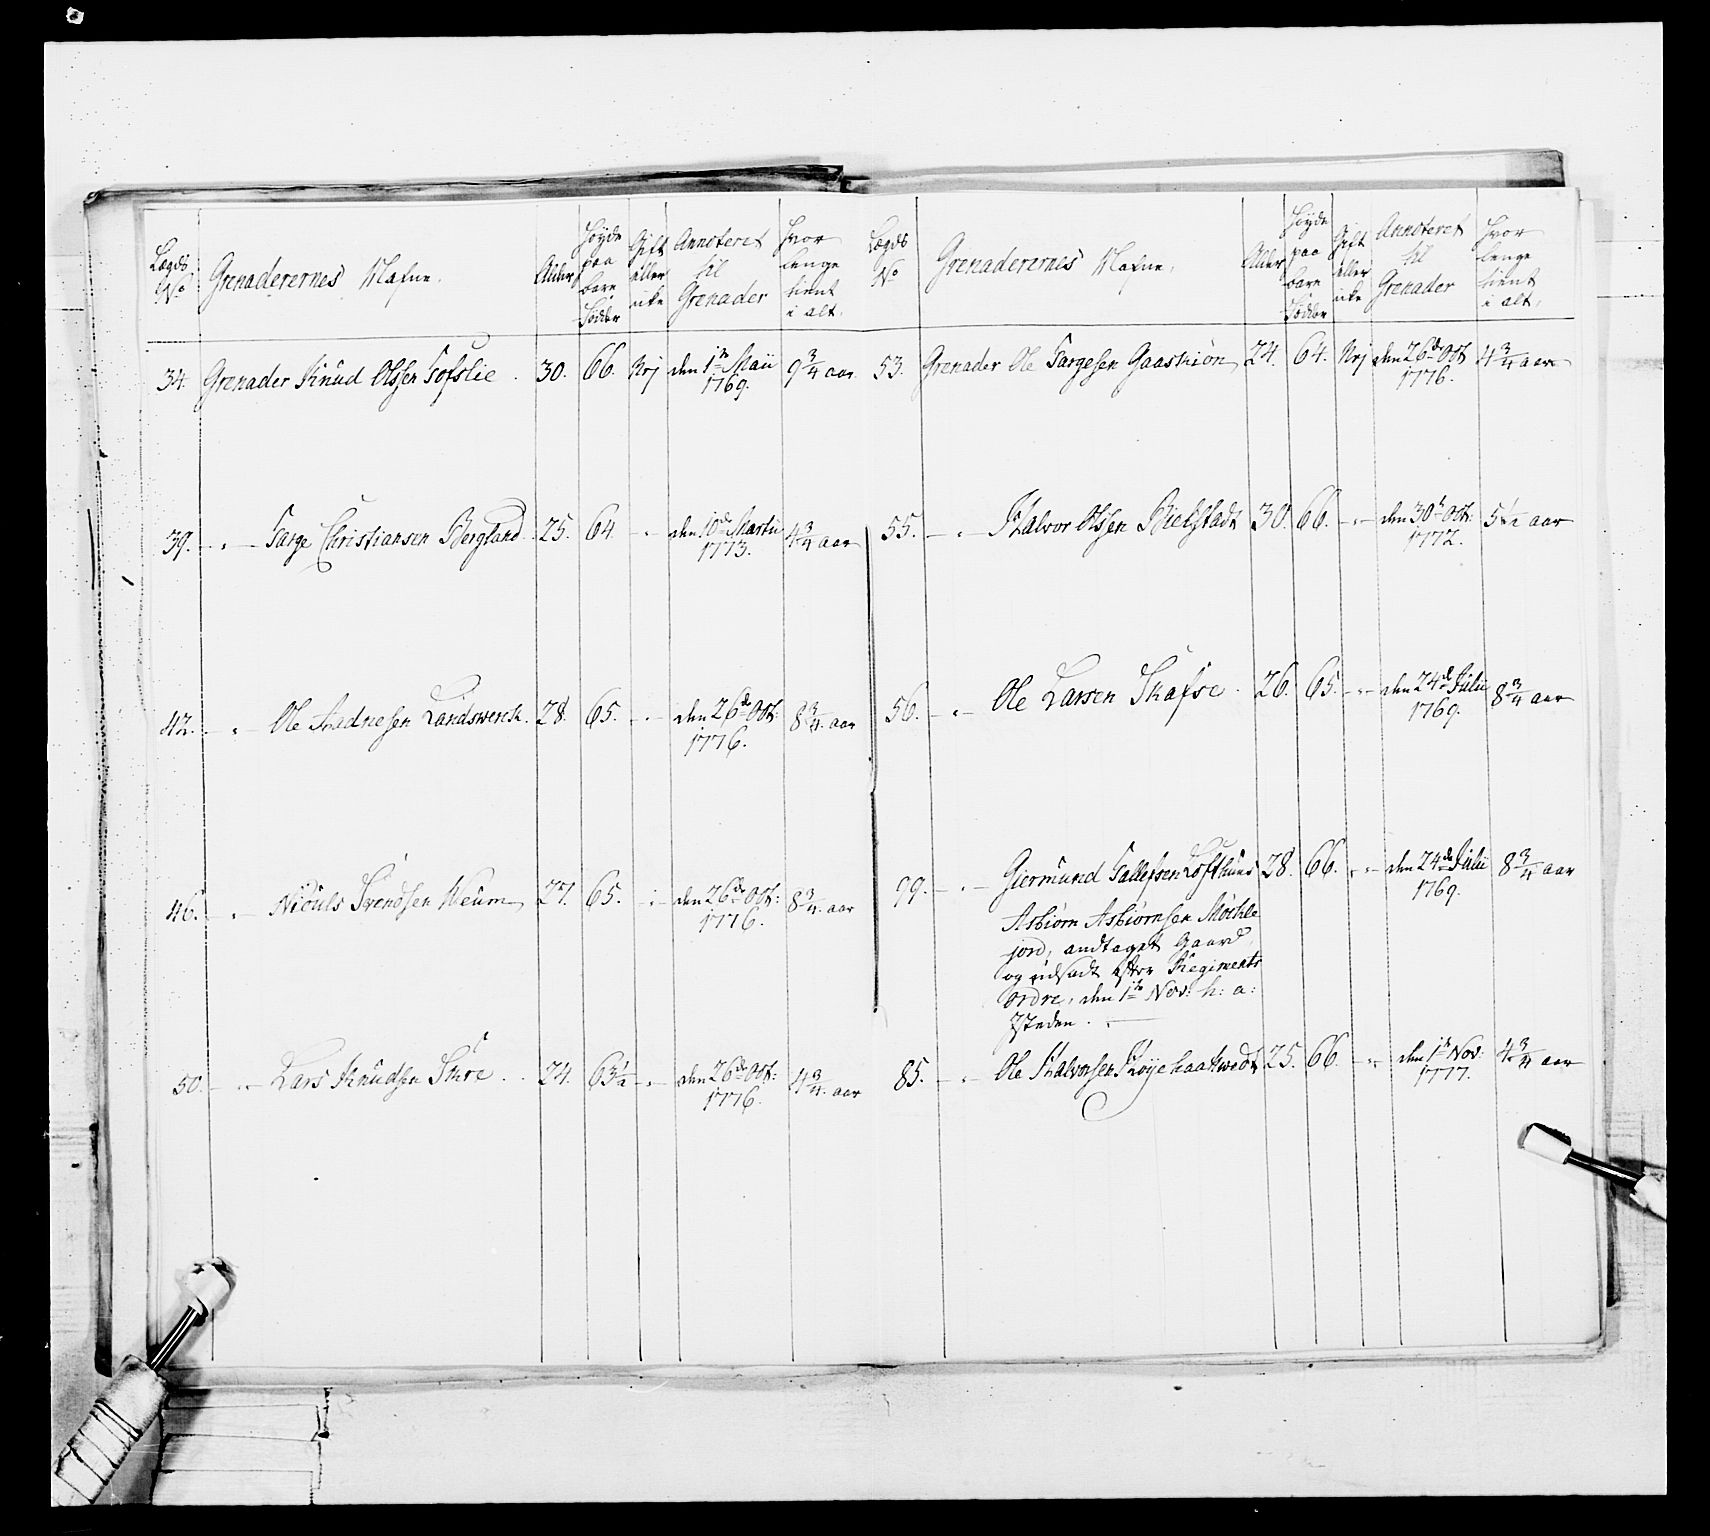 Lægds No
Grenaderernes Nafne.
Alder
Høyde paa bare Fødder
Gift eller icke
Annoteret til Grenader
Hvor lenge tient i alt.
34. Grenader Knud Olssen Tofslie. 30. 66. Nej den 1te Maii 1769. 9 3/4 aar
39. — " — Targe Christiansen Bergland. 25. 64. — " den 10de Martii 1773. 4 3/4 aar
42. — " — Ole Aadnesen Landswerck. 28. 65. — " — den 26de Oct: 1776. 8 3/4 aar
46. — " Nicüls Svendsen Neüm 27. 65. — " — den 26de Oct: 1776. 8 3/4 aar
50. — " — Lars Knudsen Skrc. 24. 63 1/2 — " — den 26de Oct: 1776. 4 3/4 aar
Lægds No
Grenaderernes Nafne.
Alder
Høyde paa bare Fødder
Gift eller icke
Annoteret til Grenader
Hvor lenge tient i alt.
53. Grenader Ole Targesen Gaaskiøn 24. 64. Nej den 26de Oct 1776. 4 3/4 aar
55. — " — Halvor Olssen Bielstadt 30. 66. — " — den 30te Oct: 1772. 5 1/2 aar
56. — " — Ole Larsen Skafse. 26. 65. — " — den 24de Julii 1769. 8 3/4 aar
99. — " — Giermund Tallefsen Lofthuus 28. 66. " " — den 24de Julii 1769. 8 3/4 aar
Asbiørn Asbiørnsen Møckle
jord, andtaget Gaard,
og udsadt efter Regiments
Ordre, den 1te Nov: h: a:
Isteden.
85. — " — Ole Halvorsen Høyehaatwedt 25. 66. — " den 1te Nov: 1777. 4 3/4 aar